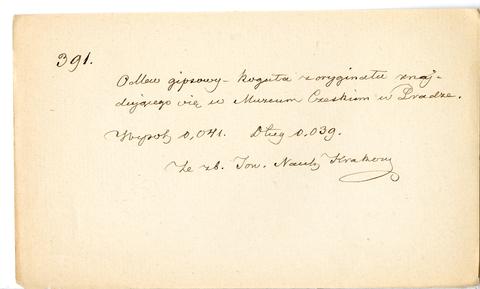 391.
Odlew gipsowy – koguta z oryginału znaj-
dującego się w Muzeum Czeskiem w Pradze.
Wysok. 0,041. Dług. 0,039.
Ze zb. Tow. Nauk. Krakow.